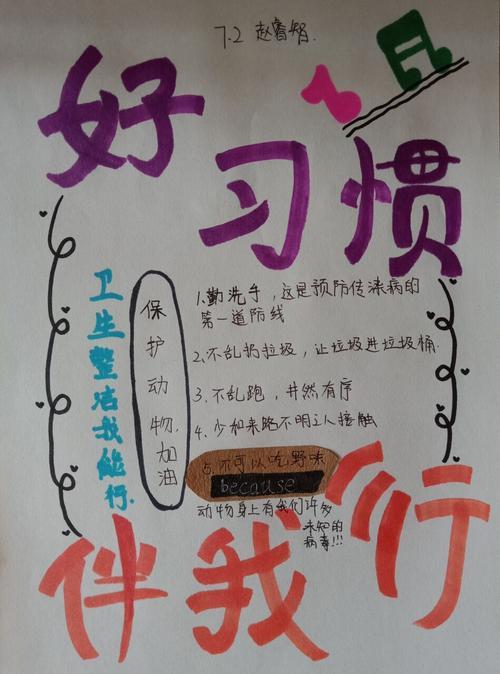 7.2 赵睿智.
好习惯
卫生整洁我能行.
保护动物,加油
1.勤洗手,这是预防传染病的
第一道防线
2.不乱扔垃圾,让垃圾进垃圾桶.
3.不乱跑,井然有序
4.少和来路不明之人接触
5.不可以吃野味
because
动物身上有我们许多
未知的
病毒!!!
伴我行